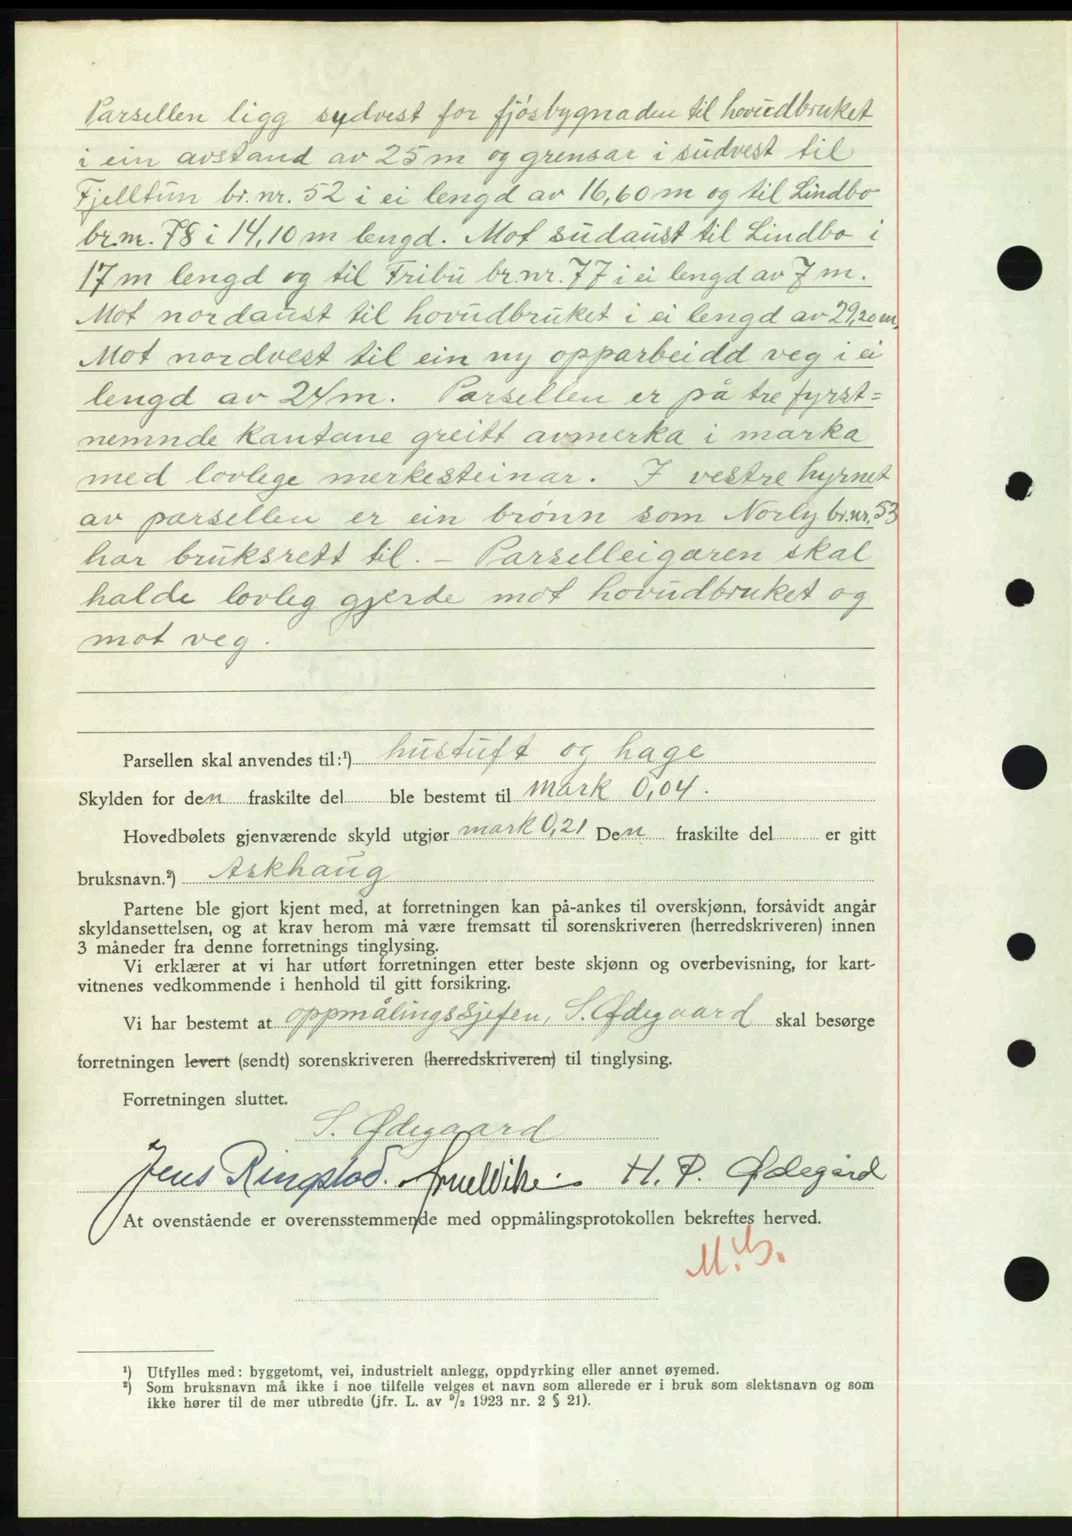 Parsellen ligg sydvest for fjósbygnaden til hovudbruket
i ein avstand av 25 m og grensar i südvest til
Fjelltün br. nr. 52 i ei lengd av 16,60 m og til Lindbo
br. nr. 78 i 14,10 m lengd. Mot südaüst til Lindbo i
17 m lengd og til Fribü br. nr. 77 i ei lengd av 7 m.
Mot nordaüst til hovüdbrüket i ei lengd av 29,20 m,
Mot nordvest til ein ny opparbeidd veg i ei
lengd av 24 m. Parsellen er på tre fyrst=
nemnde kantane greitt avmerka i marka
med lovlege merkesteinar. I vestre hyrnet
av parsellen er ein brønn som Norly br. nr. 53
har brüksrett til. – Parselleigaren skal
halde lovleg gjerde mot hovüdbruket og
mot veg.
Parsellen skal anvendes til:¹) hüstüft og hage
Skylden for den fraskilte del ble bestemt til mark 0,04.
Hovedbølets gjenværende skyld utgjør mark 0,21 Den fraskilte del er gitt
bruksnavn.²) Askhaüg
Partene ble gjort kjent med, at forretningen kan på-ankes til overskjønn, forsåvidt angår
skyldansettelsen, og at krav herom må være fremsatt til sorenskriveren (herredskriveren) innen
3 måneder fra denne forretnings tinglysing.
Vi erklærer at vi har utført forretningen etter beste skjønn og overbevisning, for kart-
vitnenes vedkommende i henhold til gitt forsikring.
Vi har bestemt at oppmålingssjefen, S. Ødegaard skal besørge
forretningen levert (sendt) sorenskriveren (herredskriveren) til tinglysing.
Forretningen sluttet.
S. Ødegaard
Jens Ringstad. Arne Vike H. P. Ødegård
At ovenstående er overensstemmende med oppmålingsprotokollen bekreftes herved.
¹) Utfylles med: byggetomt, vei, industrielt anlegg, oppdyrking eller annet øyemed.
²) Som bruksnavn må ikke i noe tilfelle velges et navn som allerede er i bruk som slektsnavn og som
ikke hører til de mer utbredte (jfr. L. av ⁹/₂ 1923 nr. 2 § 21).